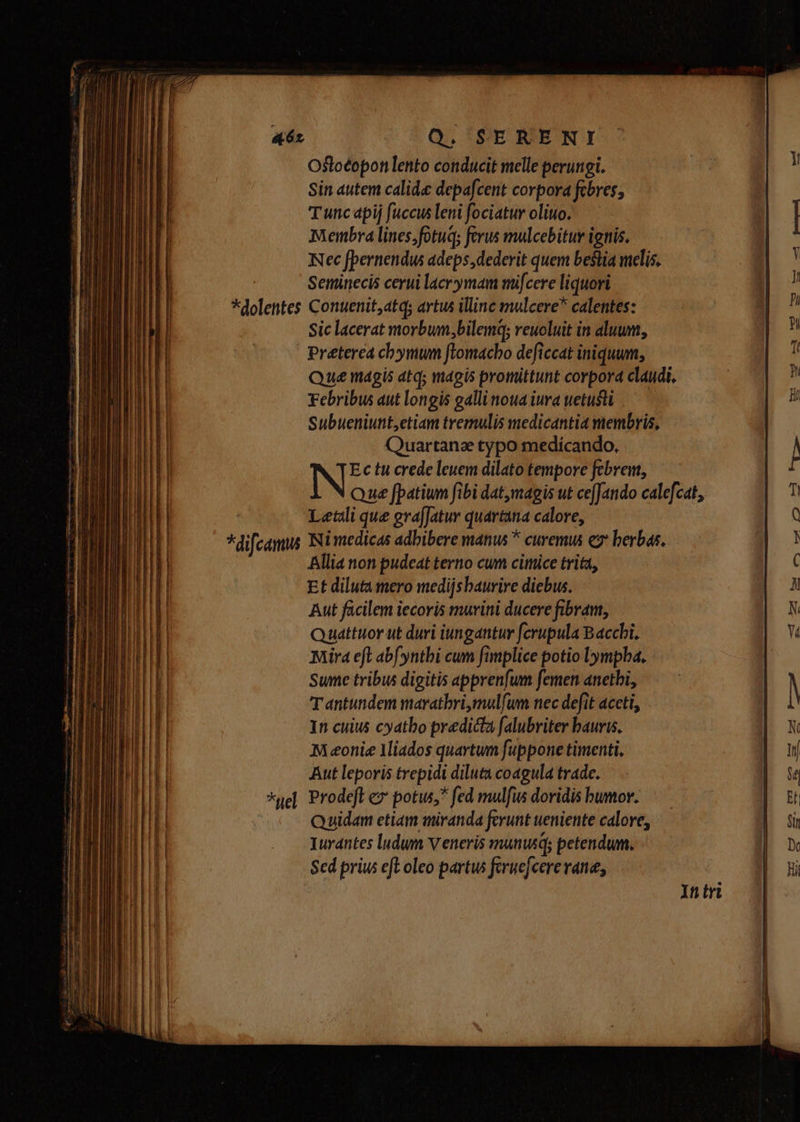 462 Q. SERENI
Oſtoéopon lento conducit melle perungi.
Sin autem calidæ depaſcent corpora febres,
Tunc apij ſuccus leni ſociatur oliuo.
Membra lines, fotuq́; ferus mulcebitur ignis.
Nec ſpernendus adeps, dederit quem beſtia melis.
Seminecis cerui lacrymam miſcere liquori
*dolentes Conuenit, atq; artus illinc mulcere* calentes:
Sic lacerat morbum, bilemq́; reuoluit in aluum,
Præterea chymum ſtomacho deſiccat iniquum,
Quæ magis atq; magis promittunt corpora claudi.
Febribus aut longis galli noua iura uetuſti
Subueniunt, etiam tremulis medicantia membris.
Quartanæ typo medicando.
NEc tu crede leuem dilato tempore febrem,
Que ſpatium ſibi dat, magis ut ceſſando calefcat,
Letali que graſſatur quartana calore,
*diſcamus Ni medicas adhibere manus * curemus & herbas.
Allia non pudeat terno cum cimice trita,
Et diluta mero medijs haurire diebus.
Aut facilem iecoris murini ducere fibram,
Quattuor ut duri iungantur ſcrupula Bacchi.
Mira eſt abſynthi cum ſimplice potio lympha.
Sume tribus digitis apprenſum ſemen anethi,
Tantundem marathri, mulſum nec deſit aceti,
In cuius cyatho prædicta ſalubriter hauris.
Mæoniæ Iliados quartum ſuppone timenti.
Aut leporis trepidi diluta coagula trade.
*uel Prodeſt & potus,* ſed mulſus doridis humor.
Quidam etiam miranda ferunt ueniente calore,
Iurantes ludum Veneris munusq́; petendum.
Sed prius eſt oleo partus ferueſcere ranæ,
In tri